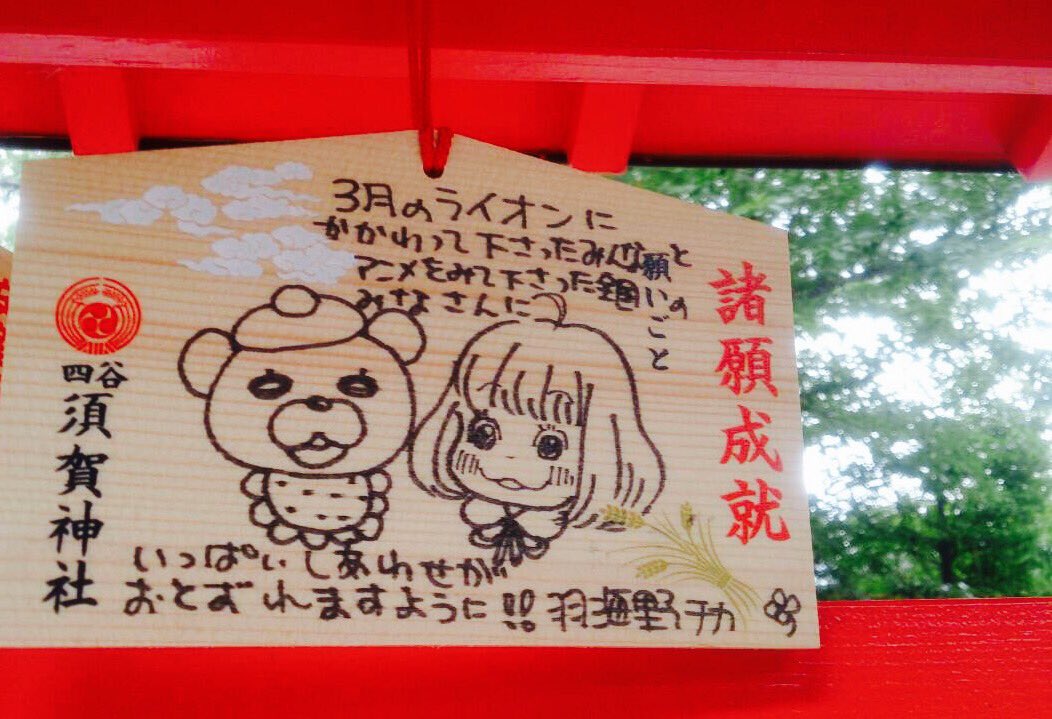 3月のライオンに
かかわって下さったみんな願と
アニメをみて下さった全国いの
みなさんに ごと
諸願成就
四谷
須賀神社
いっぱいしあわせが
おとずれますように!! 羽海野チカ